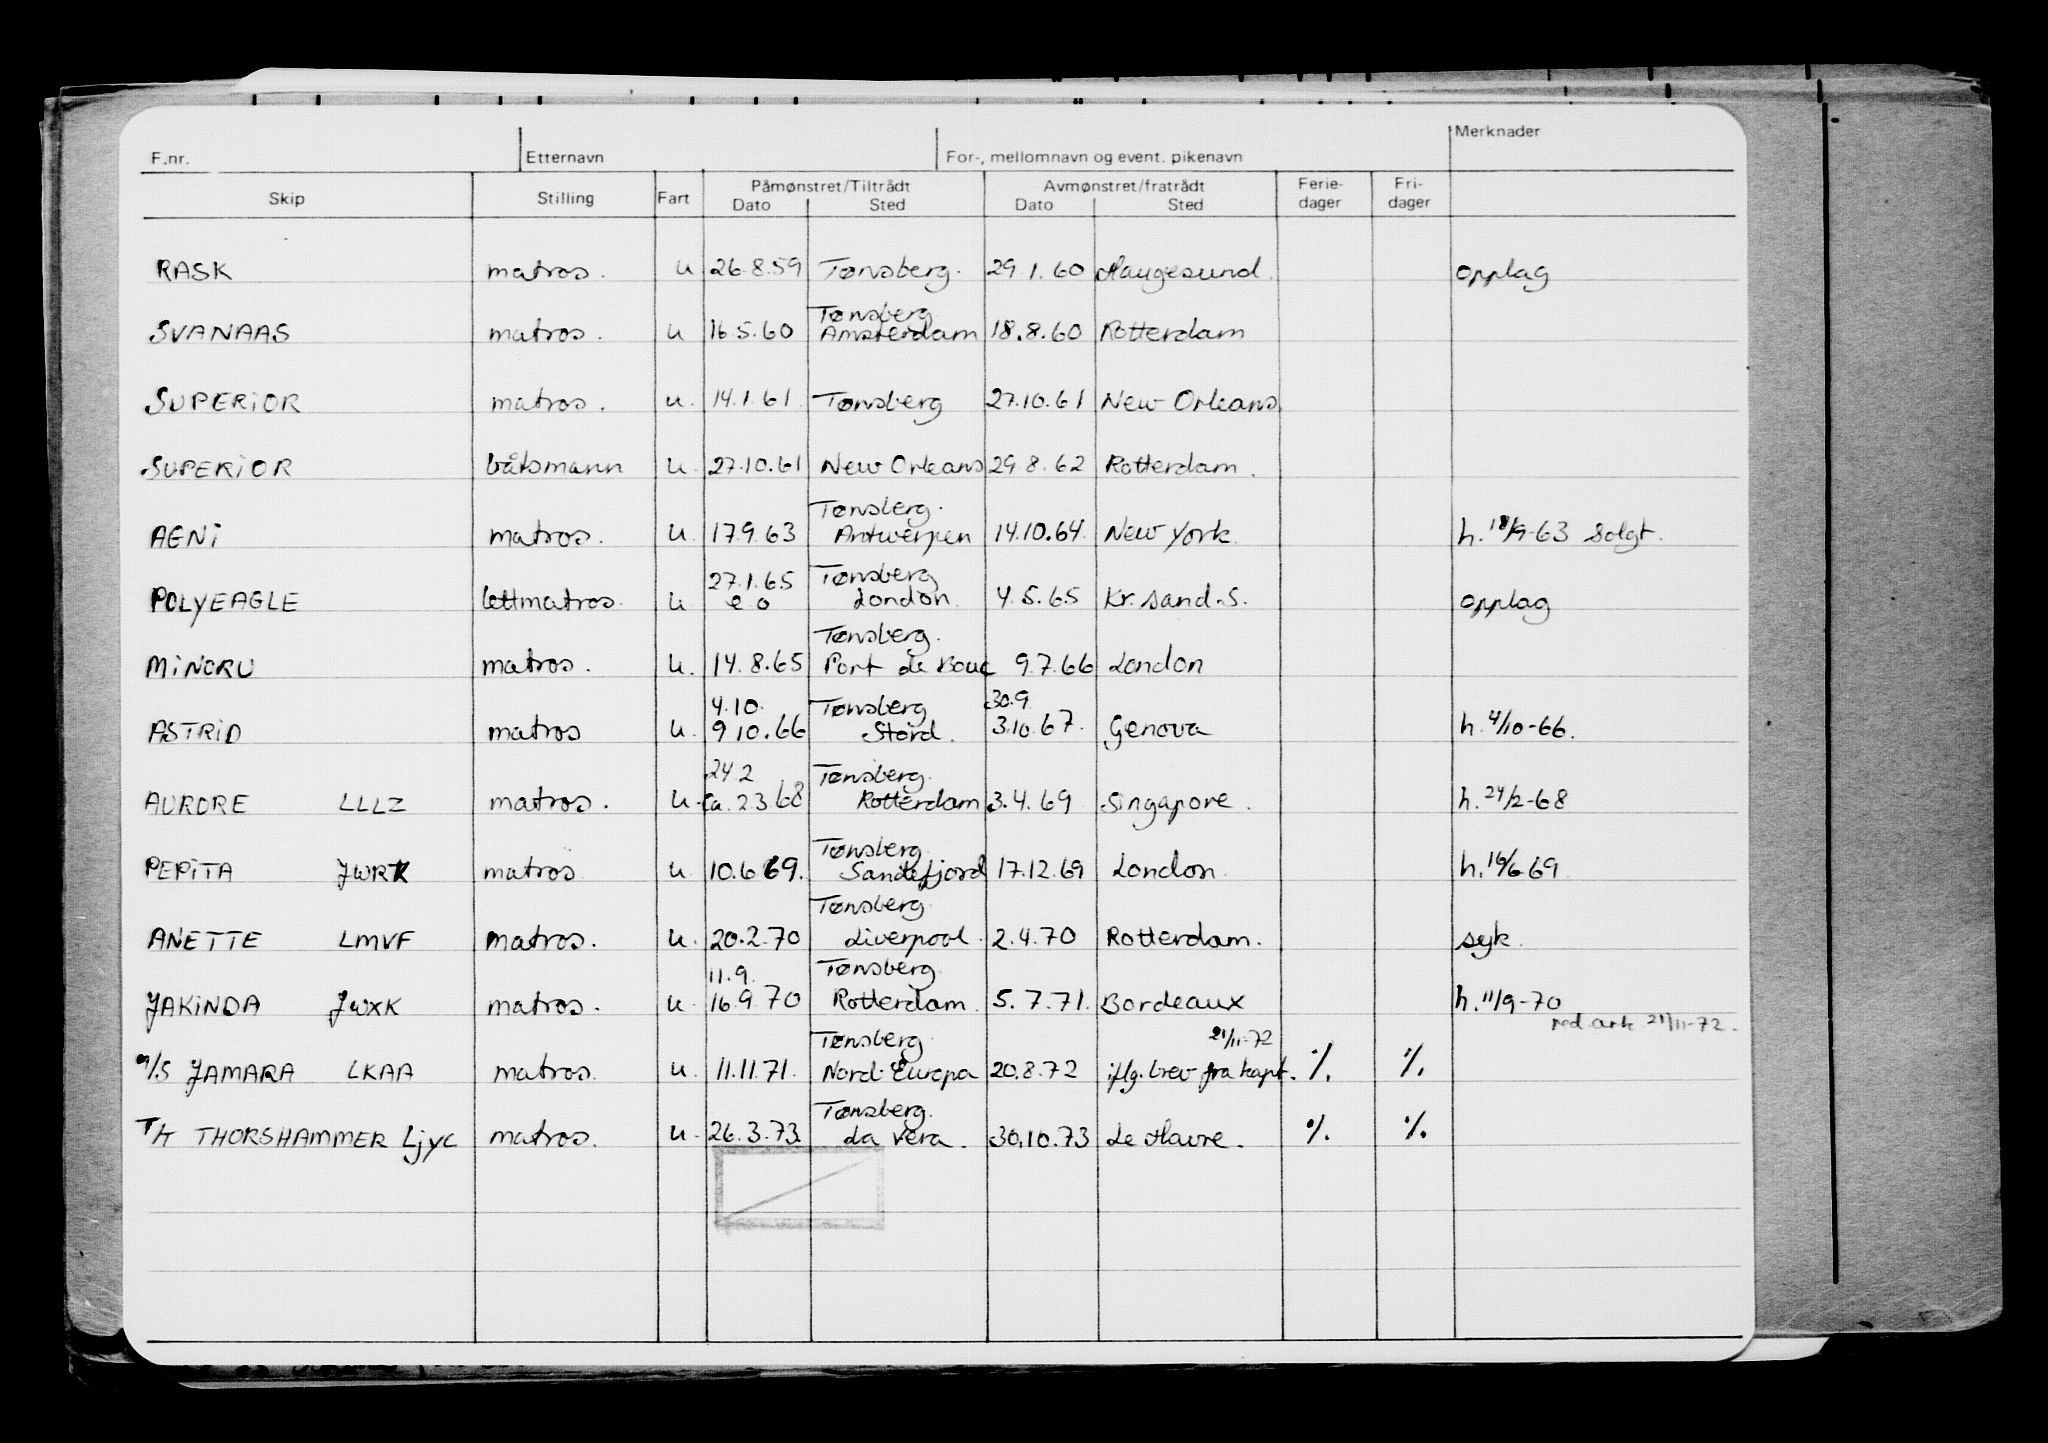 F.nr. Etternavn For-, mellomnavn og event. pikenavn Merknader
Skip Stilling Fart Påmønstret/Tiltrådt Dato Sted Avmønstret/fratrådt Dato Sted Ferie-dager Fri-dager
RASK matros. u 26.8.59 Tønsberg. 29.1.60 Haugesund. opplag
Tønsberg
SVANAAS matros. u 16.5.60 Amsterdam 18.8.60 Rotterdam
SUPERiOR matros. u. 14.1.61. Tønsberg 27.10.61 New Orleans
SUPERiOR båtsmann u. 27.10.61 New Orleans 29.8.62 Rotterdam.
Tønsberg.
AGNi matros. u. 17.9.63 Antwerpen 14.10.64. New York. h. 18/9-63 Solgt.
27.1.65 Tønsberg
POLYEAGLE lettmatros. u e o London. 4.5.65 Kr. sand. S. opplag
Tønsberg.
MiNORU matros. u. 14.8.65 Port de Bouc 9.7.66 London
4.10. Tønsberg 30.9
ASTRiD matros u. 9 10.66 Stord. 3.10.67. Genova h. 4/10-66.
24 2 Tønsberg.
AURORE LLLZ matros. u. ca. 2.3 68 Rotterdam 3.4.69 Singapore. h. 24/2-68
Tønsberg.
PEPiTA JWRK matros u. 10.6 69. Sandefjord 17.12.69 London. h. 10/6 69
Tønsberg.
ANETTE LMVF matros. u. 20.2.70 Liverpool. 2.4.70 Rotterdam. syk.
11.9. Tønsberg.
JAKiNDA JWXK matros. u. 16.9.70 Rotterdam. 5.7.71. Bordeaux h. 11/9-70
red ark 21/11-72.
Tønsberg 21/11-72
M/S JAMARA LKAA matros. u. 11.11.71. Nord-Europa 20.8.72 iflg. brev fra kapt. %. %.
Tønsberg.
T/T THORSHAMMER Ljyc matros. u. 26.3.73. La Vera. 30.10.73 Le Havre. %. %.